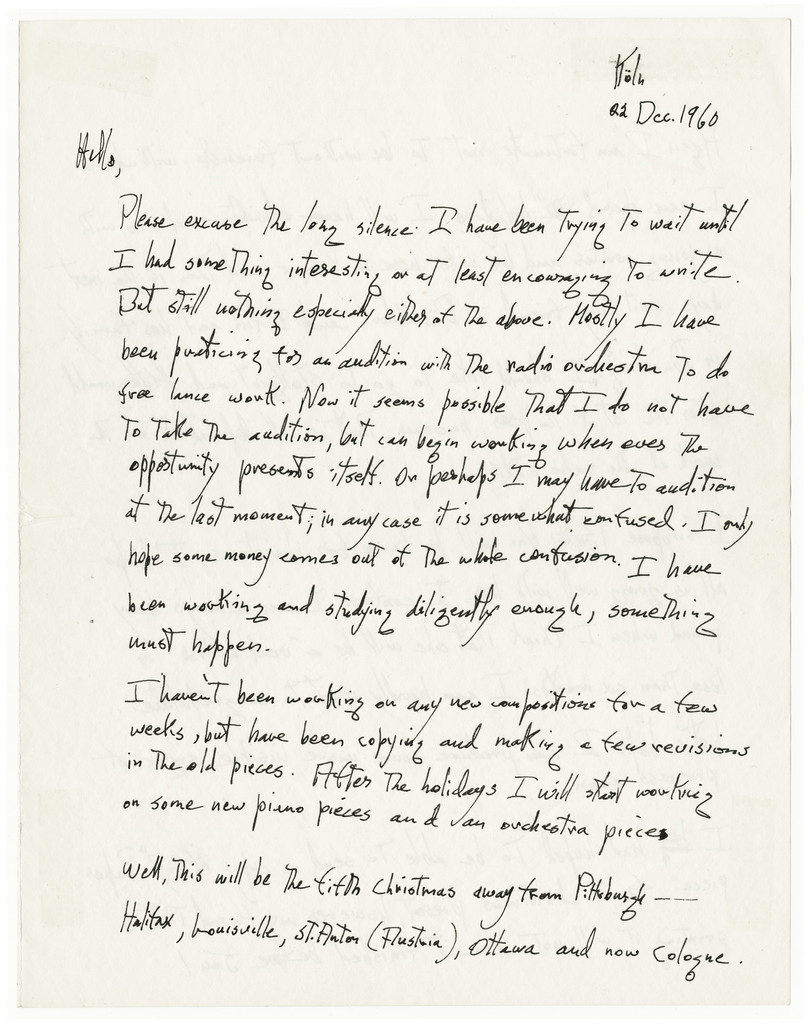 Köln
22 Dec. 1960
Hello,
Please excuse the long silence. I have been trying to wait until
I had something interesting or at least encouraging to write.
But still nothing especially either of the above. Mostly I have
been practicing for an audition with the radio orchestra to do
free lance work. Now it seems possible that I do not have
to take the audition, but can begin working when ever the
opportunity presents itself. Or perhaps I may have to audition
at the last moment; in any case it is somewhat confused. I only
hope some money comes out of the whole confusion. I have
been working and studying diligently enough, something
must happen.
I haven't been working on any new compositions for a few
weeks, but have been copying and making a few revisions
in the old pieces. After the holidays I will start working
on some new piano pieces and an orchestra piece
Well, this will be the fifth Christmas away from Pittsburgh ——
Halifax, Louisville, St. Anton (Austria), Ottawa and now Cologne.